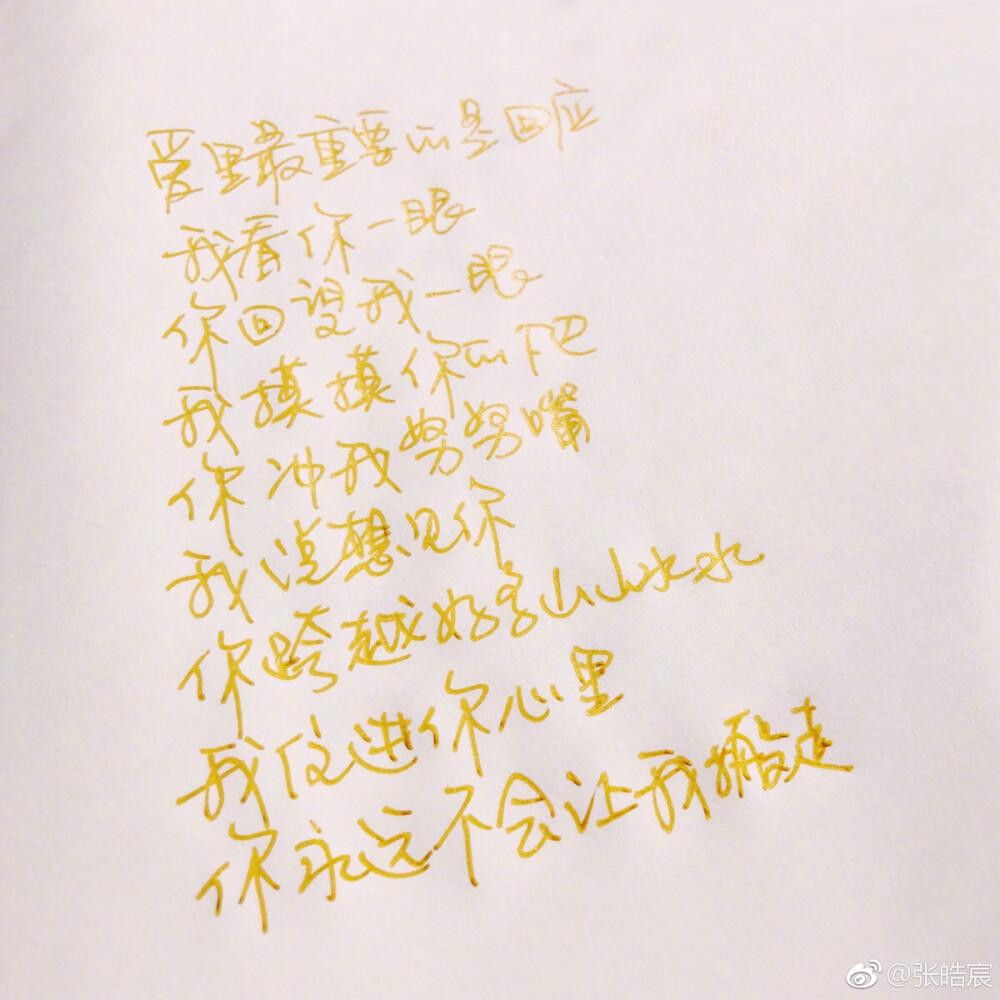 爱里最重要的是回应
我看你一眼
你回望我一眼
我摸摸你的下巴
你冲我努努嘴
我说想见你
你跨越好多山山水水
我住进你心里
你永远不会让我搬走
@张皓宸